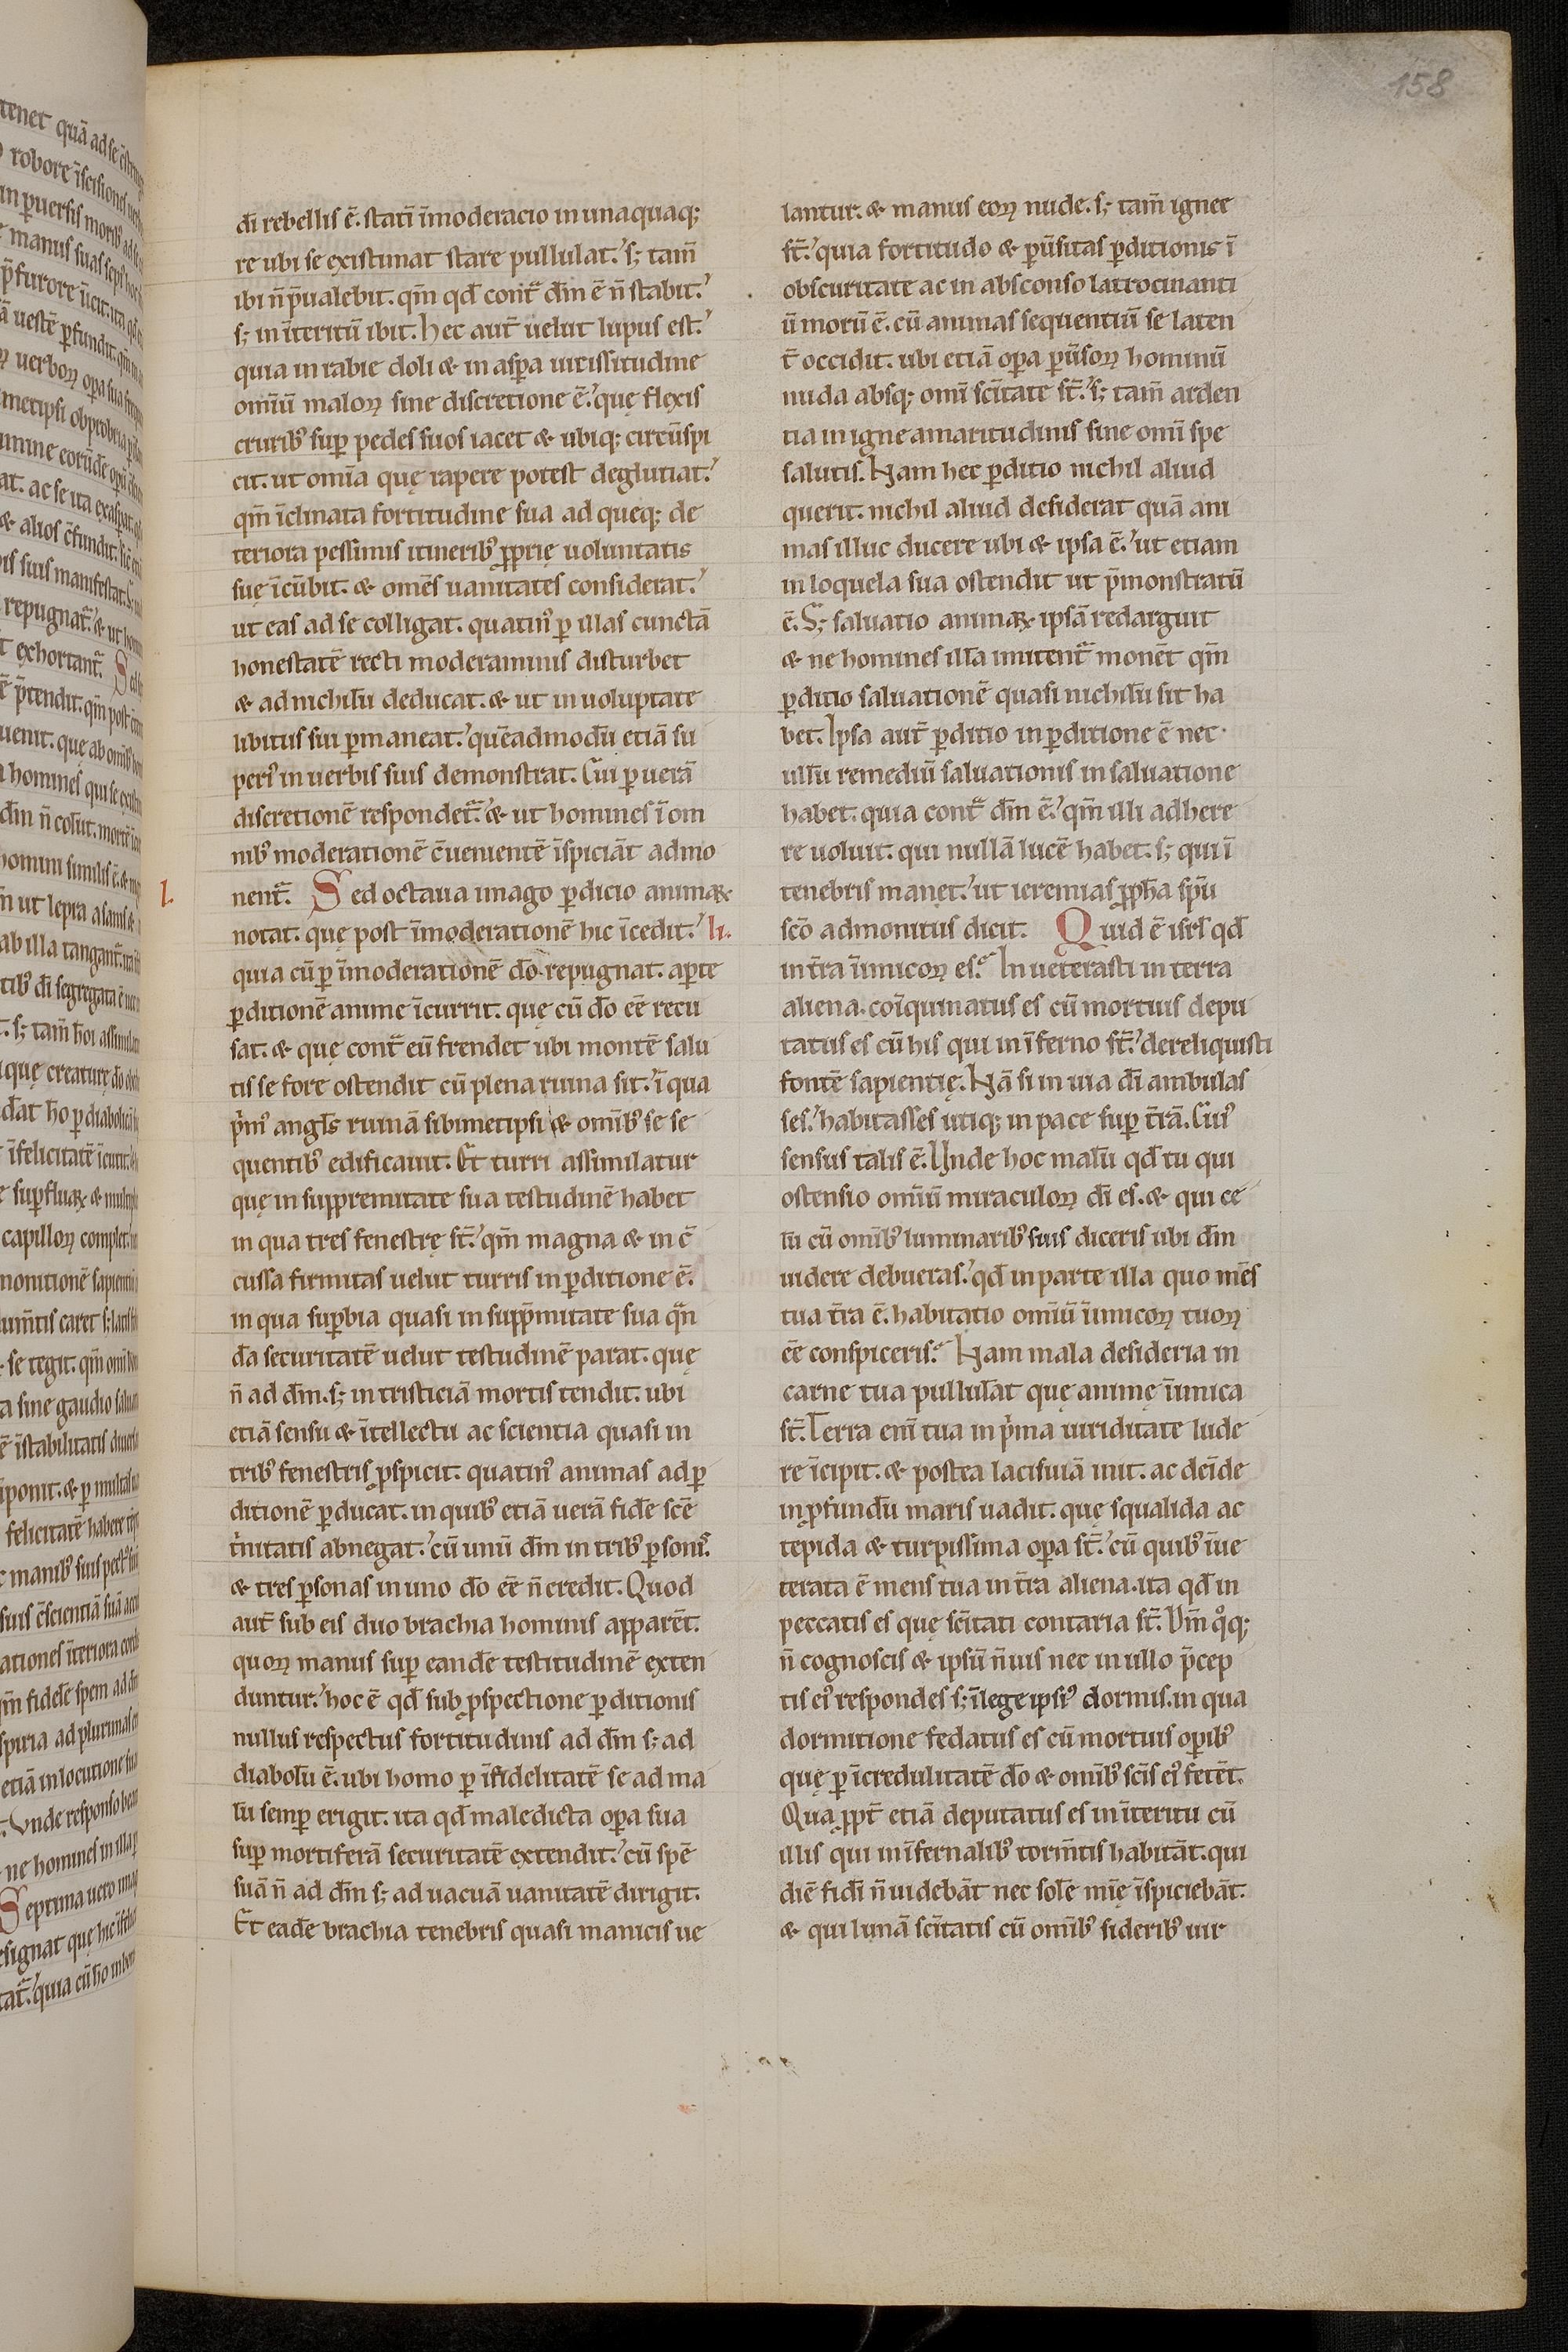 158
dī rebellis ē. statī īmoderacio in unaquaq;
re ubi se existimat stare pullulat. s; tam̄
ibi n̄ p̄ualebit. qm̄ qd̄ cont̄ dm̄ ē n̄ stabit.
s; in īteritū ibit. Hec aut̄ uelut lupus est.
quia in rabie doli & in asꝑa uicissitudine
om̄iū maloꝝ sine discretione ē. quę flexis
crurib᾽ suꝑ pedes suos iacet & ubiq; circūspi
cit. ut om̄ia quę rapere potest deglutiat.
qm̄ īclinata fortitudine sua ad queq; de
teriora pessimis itinerib᾽ ꝓprię uoluntatis
suę īcūbit. & om̄es uanitates considerat.
ut eas ad se colligat. quatin᾽ ꝑ illas cunctā
honestatē recti moderaminis disturbet
& ad nichilū deducat. & ut in uoluptate
libitus sui ꝑmaneat. quēadmodū etiā su
peri᾽ in uerbis suis demonstrat. Cui ꝑ uerā
discretionē respondet̄. & ut homines ī om
nib᾽ moderationē c̄uenientē īspiciāt admo
l.
nent̄. Sed octaua imago ꝑdicio animaꝝ
notat. quę post īmoderationē hic īcedit. li.
quia cū ꝑ īmoderationē dō repugnat. aꝑte
ꝑditionē anime īcurrit. quę cū dō eē recu
sat. & quę cont̄ eū frendet ubi montē salu
tis se fore ostendit cū plena ruina sit. ī qua
p̄m᾽ angl̄s ruinā sibimetipsi & om̄ib᾽ se se
quentib᾽ edificauit. Et turri assimilatur
quę in suppremitate sua testudinē habet
in qua tres fenestrę st̄. qm̄ magna & in c̄
cussa firmitas uelut turris in ꝑditione ē.
in qua suꝑbia quasi in supp̄mitate sua q̄n
d̄a securitatē uelut testudinē parat. quę
n̄ ad dm̄. s; in tristiciā mortis tendit. ubi
etiā sensu & ītellectu ac scientia quasi in
trib᾽ fenestris ꝓspicit. quatin᾽ animas ad ꝑ
ditionē ꝑducat. in quib᾽ etiā uerā fidē scē
t̄nitatis abnegat. cū unū dm̄ in trib᾽ ꝑson᾽.
& tres ꝑsonas in uno dō eē n̄ credit. Quod
aut̄ sub eis duo brachia hominis apparēt.
quoꝝ manus suꝑ eandē testitudinē exten
duntur. hoc ē qd̄ sub ꝓspectione ꝑditionis
nullus respectus fortitudinis ad dm̄ s; ad
diabolū ē. ubi homo ꝑ īfidelitatē se ad ma
lū semꝑ erigit. ita qd̄ maledicta oꝑa sua
suꝑ mortiferā securitatē extendit. cū spē
suā n̄ ad dm̄ s; ad uacuā uanitatē dirigit.
Et eadē brachia tenebris quasi manicis ue
lantur. & manus eoꝝ nude. s; tam̄ ignee
st̄. quia fortitudo & ꝑūsitas ꝑditionis ī
obscuritate ac in absconso latrocinanti
ū morū ē. cū animas sequentiū se laten
t̄ occidit. ubi etiā oꝑa ꝑūsoꝝ hominū
nuda absq; om̄i scītate st̄. s; tam̄ arden
tia in igne amaritudinis sine om̄i spe
salutis. Nam hec ꝑditio nichil aliud
querit. nichil aliud desiderat quā ani
mas illuc ducere ubi & ipsa ē. ut etiam
in loquela sua ostendit ut p̄monstratū
ē. S; saluatio animaꝝ ipsā redarguit
& ne homines illā imitent̄ monēt qm̄
ꝑditio saluationē quasi nichilū sit ha
bet. Ipsa aut̄ ꝑditio in ꝑditione ē nec
ullū remediū saluationis in saluatione
habet. quia cont̄ dm̄ ē. qm̄ illi adhere
re uoluit. qui nullā lucē habet. s; qui ī
tenebris manet. ut ieremias ꝓph̄a sp̄u
scō admonitus dicit. Quid ē isrl̄ qd̄
in t̄ra īimicoꝝ es. Inueterasti in terra
aliena. coīquinatus es cū mortuis depu
tatus es cū his qui in īferno st̄. dereliquisti
fontē sapientię. Nā si in uia dī ambulas
ses. habitasses utiq; in pace suꝑ t̄rā. Cui᾽
sensus talis ē. Unde hoc malū qd̄ tu qui
ostensio om̄iū miraculoꝝ dī es. & qui ce
lū cū om̄ib᾽ luminarib᾽ suis diceris ubi dm̄
uidere debueras. qd̄ in parte illa quo mēs
tua t̄ra ē. habitatio om̄iū īimicoꝝ tuoꝝ
eē conspiceris. Nam mala desideria in
carne tua pullulāt quę animę īimica
st̄. Terra enī tua in p̄ma uiriditate lude
re īcipit. & postea lasciuiā init. ac deīde
in ꝓfundū maris uadit. quę squalida ac
tepida & turpissima oꝑa st̄. cū quib᾽ īue
terata ē mens tua in t̄ra aliena. ita qd̄ in
peccatis es quę scītati contaria st̄. Dm̄ qͦq;
n̄ cognoscis & ipsū n̄ uis nec in ullo p̄cep
tis ei᾽ respondes s; ī lege ipsi᾽ dormis. in qua
dormitione fedatus es cū mortuis oꝑib᾽
quę ꝑ īcredulitatē dō & om̄ib᾽ scīs ei᾽ fetēt.
Qua ꝓpt̄ etiā deputatus es in īteritu cū
illis qui in īfernalib᾽ torm̄tis habitāt. qui
diē fidī n̄ uidebāt nec solē mīę īspiciebāt.
& qui lunā scītatis cū om̄ib᾽ siderib᾽ uir